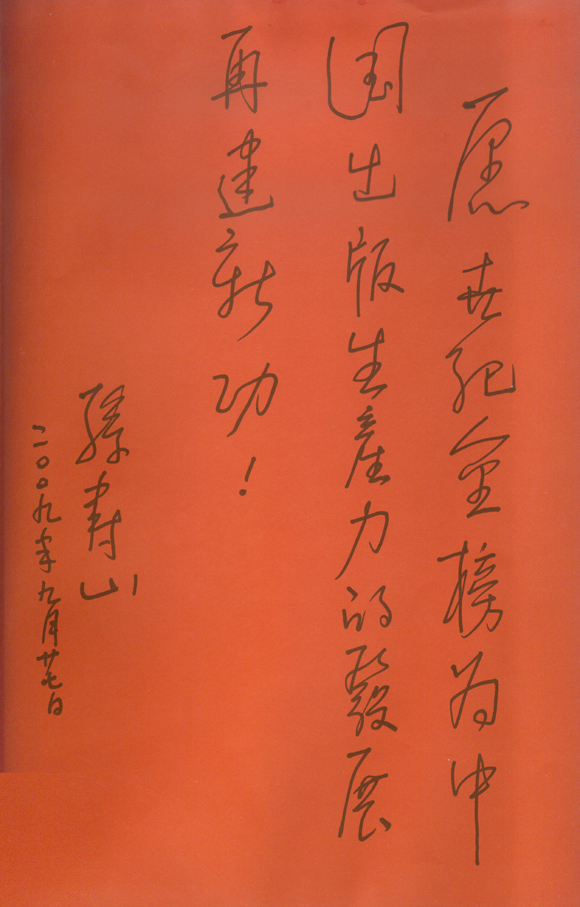 愿世纪金榜为中
国出版生產力的發展
再建新功！
孫寿山
二〇〇九年九月廿七日